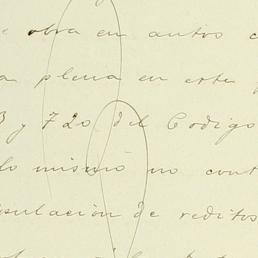 e obra en autos c
a plena en este
3 y 720 del Codigo
lo mismo no cont
ipulación de reditos